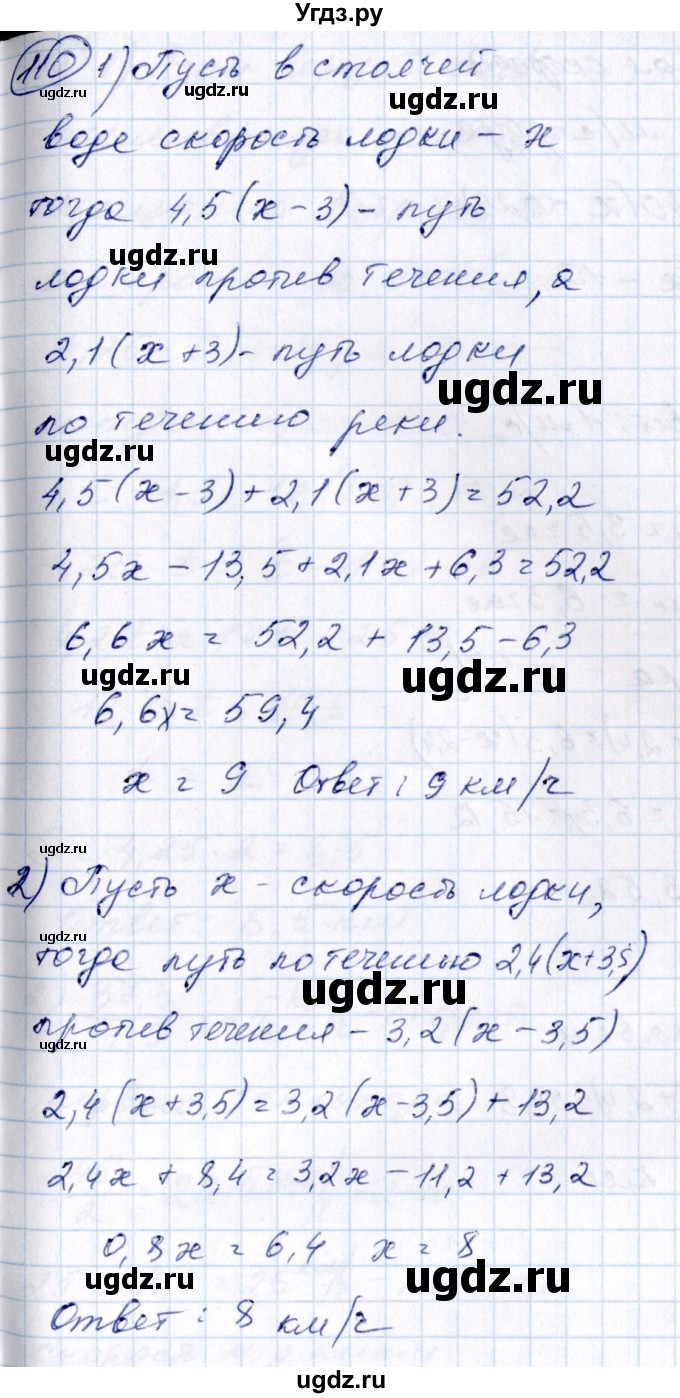 Угдз.ру
110 1) Пусть в стоячей
ugdz.ru ugdz.ru
воде скорость лодки – x
тогда 4,5(x-3) - путь
ugdz.ru
лодки против течения, а
2,1(x+3) - путь лодки
ugdz.ru
по течению реки.
ugdz.ru
4,5(x-3)+2,1(x+3)=52,2
4,5x-13,5+2,1x+6,3=52,2
6,6x=52,2+13,5-6,3
ugdz.ru ugdz.ru
6,6x=59,4
x=9 Ответ: 9 км/ч
ugdz.ru
2) Пусть x - скорость лодки,
ugdz.ru
тогда путь по течению 2,4(x+3,5)
ugdz.ru
против течения - 3,2(x-3,5)
ugdz.ru
2,4(x+3,5)=3,2(x-3,5)+13,2
2,4x+8,4=3,2x-11,2+13,2
0,8x=6,4 x=8
ugdz.ru ugdz.ru
Ответ: 8 км/ч
ugdz.ru